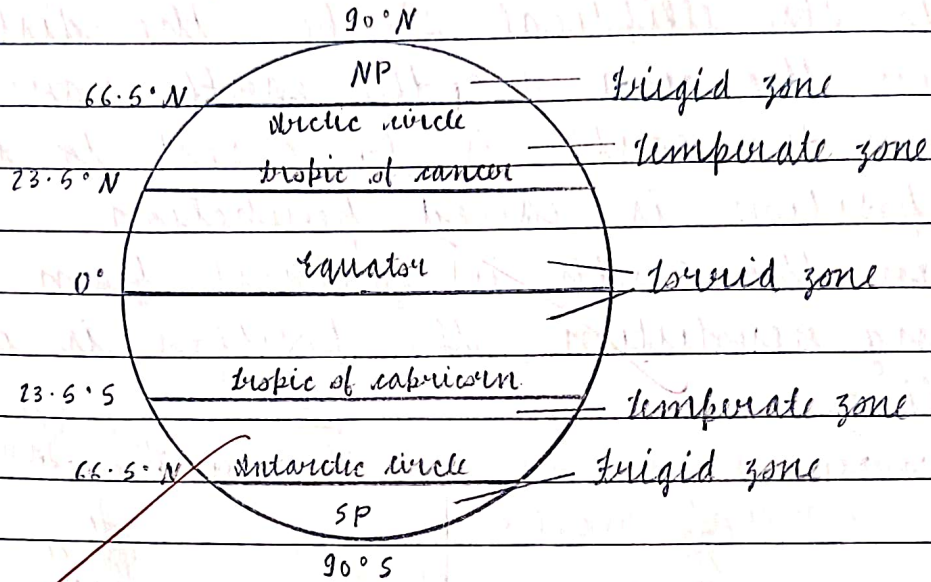 90°N
NP
frigid zone
66.5°N
arctic circle
temperate zone
23.5°N
tropic of cancer
equator
0°
torrid zone
tropic of capricorn
23.5°S
temperate zone
66.5°N
antarctic circle
frigid zone
SP
90°S